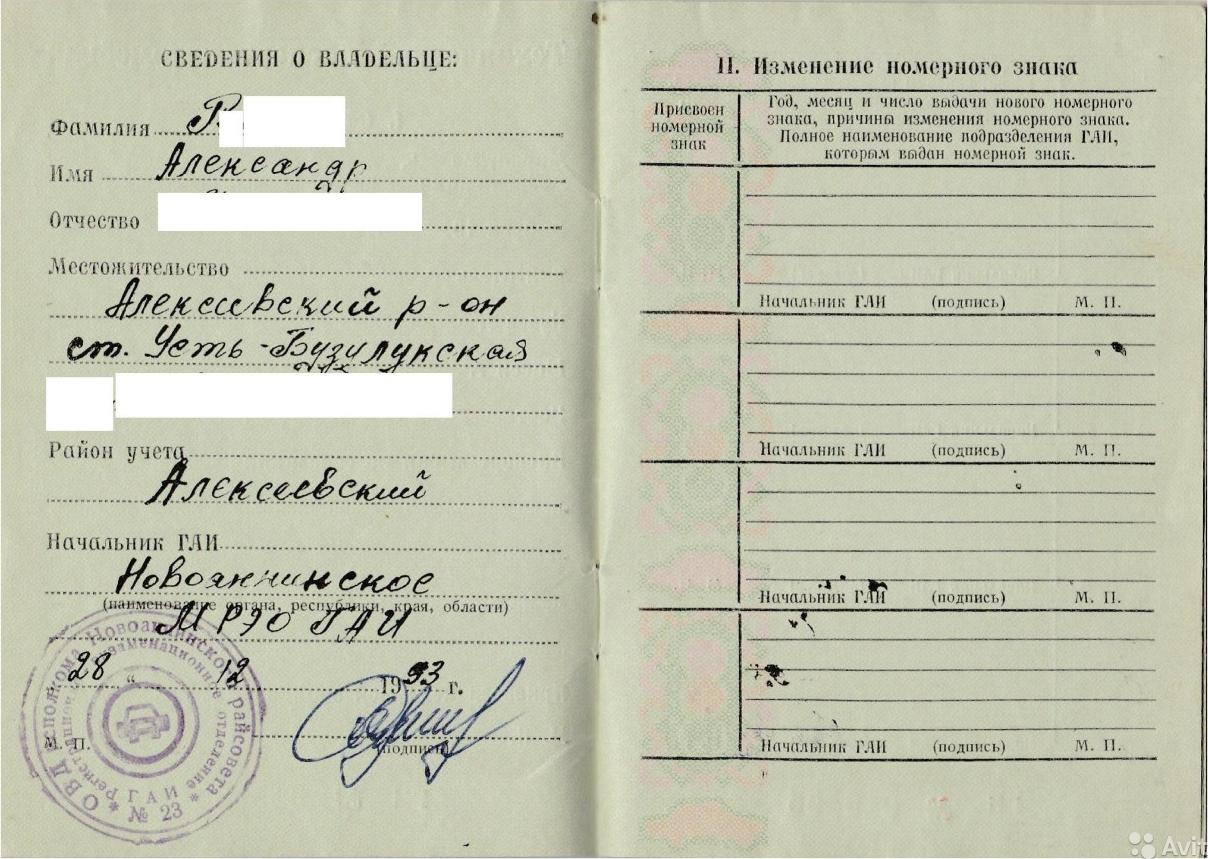 СВЕДЕНИЯ О ВЛАДЕЛЬЦЕ:
Фамилия
Имя Александр
Отчество
Местожительство
Алексеевский р-он
ст. Усть-Бузулукская
Район учета
Алексеевский
Начальник ГАИ
Новоаннинское
(наименование органа, республики, края, области)
МРЭО ГАИ
28 " 12 1993 г.
М. П. (подпись)
ОВД исполкома Новоаннинского райсовета
Регистрационно-экзаменационное отделение
ГАИ
№ 23
II. Изменение номерного знака
Присвоен
номерной
знак
Год, месяц и число выдачи нового номерного
знака, причины изменения номерного знака.
Полное наименование подразделения ГАИ,
которым выдан номерной знак.
Начальник ГАИ (подпись) М. П.
Начальник ГАИ (подпись) М. П.
Начальник ГАИ (подпись) М. П.
Начальник ГАИ (подпись) М. П.
Avit